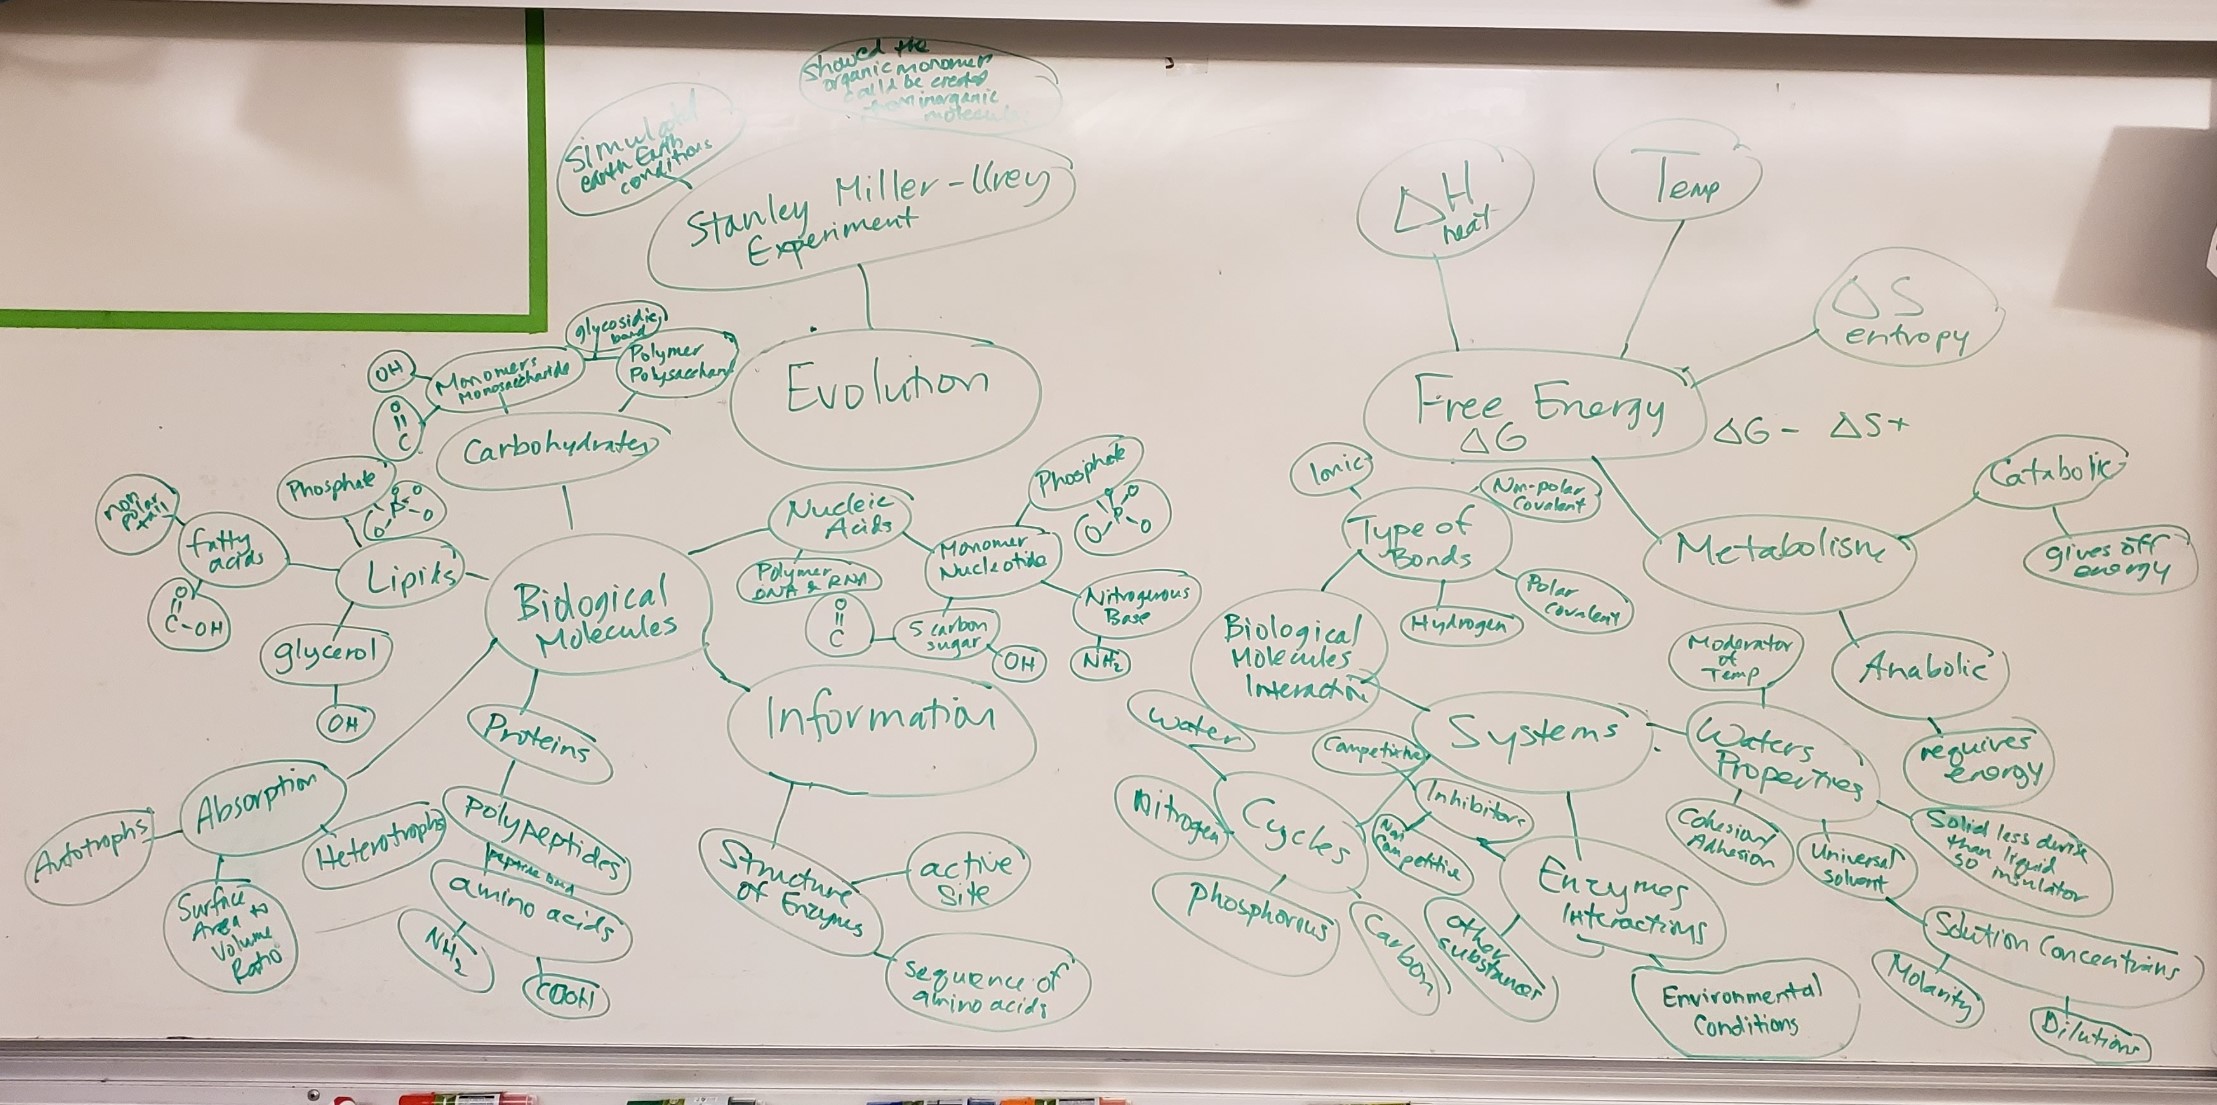 Showed the
organic monomers
could be created
from inorganic
molecules
Simulated
earth Earth
conditions
Stanley Miller-Urey
Experiment
Evolution
glycosidic
bond
Monomers
Monosaccharide
Polymer
Polysacchar
OH
O
C
Carbohydrates
Phosphate
O O
P
O O
non
polar
tail
fatty
acids
O
C-OH
Lipids
glycerol
OH
Biological
Molecules
Nucleic
Acids
Polymer
DNA & RNA
Monomer
Nucleotide
Phosphate
O O
P
O O
Nitrogenous
Base
NH2
5 carbon
sugar
O
C
OH
Information
Structure
of Enzymes
active
site
sequence of
amino acids
Proteins
Polypeptides
peptide bond
amino acids
NH2
COOH
Absorption
Autotrophs
Heterotrophs
Surface
Area to
Volume
Ratio
ΔH
heat
Temp
ΔS
entropy
Free Energy
ΔG
ΔG - ΔS+
Metabolism
Catabolic
gives off
energy
Anabolic
requires
energy
Ionic
Non-polar
Covalent
Type of
Bonds
Hydrogen
Polar
Covalent
Biological
Molecules
Interaction
Systems
Moderator
of
Temp
Waters
Properties
Cohesion/
Adhesion
Universal
Solvent
Solid less dense
than liquid
so insulator
Solution Concentrations
Molarity
Dilutions
Water
Nitrogen
Cycles
Phosphorous
Carbon
Competitive
Inhibitors
Non
Competitive
Enzymes
Interactions
Other
substances
Environmental
Conditions